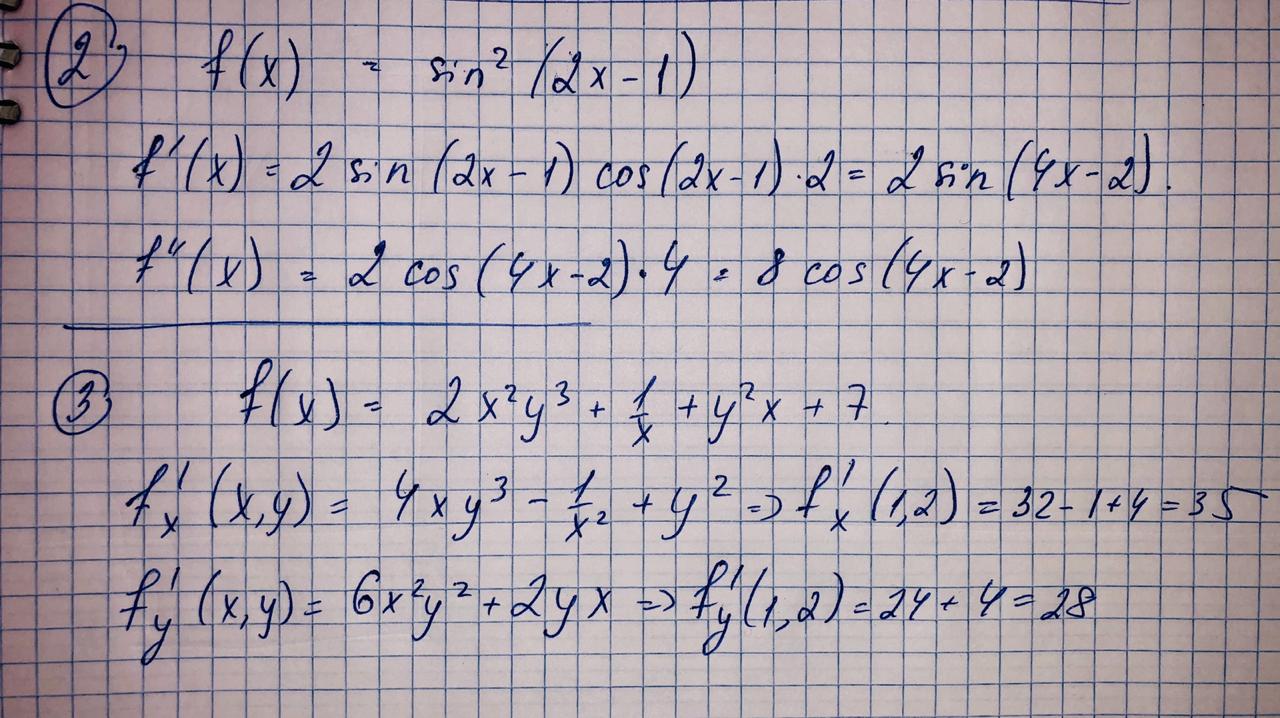 ② f(x) = sin² (2x-1)
f'(x) = 2 sin (2x-1) cos(2x-1)·2 = 2 sin(4x-2).
f''(x) = 2 cos(4x-2)·4 = 8 cos(4x-2)
③ f(x) = 2x²y³ + 1/x + y²x + 7.
f'ₓ (x,y) = 4xy³ - 1/x² + y² => f'ₓ (1,2) = 32-1+4=35
f'_y (x,y) = 6x²y² + 2yx => f'_y (1,2) = 24+4=28